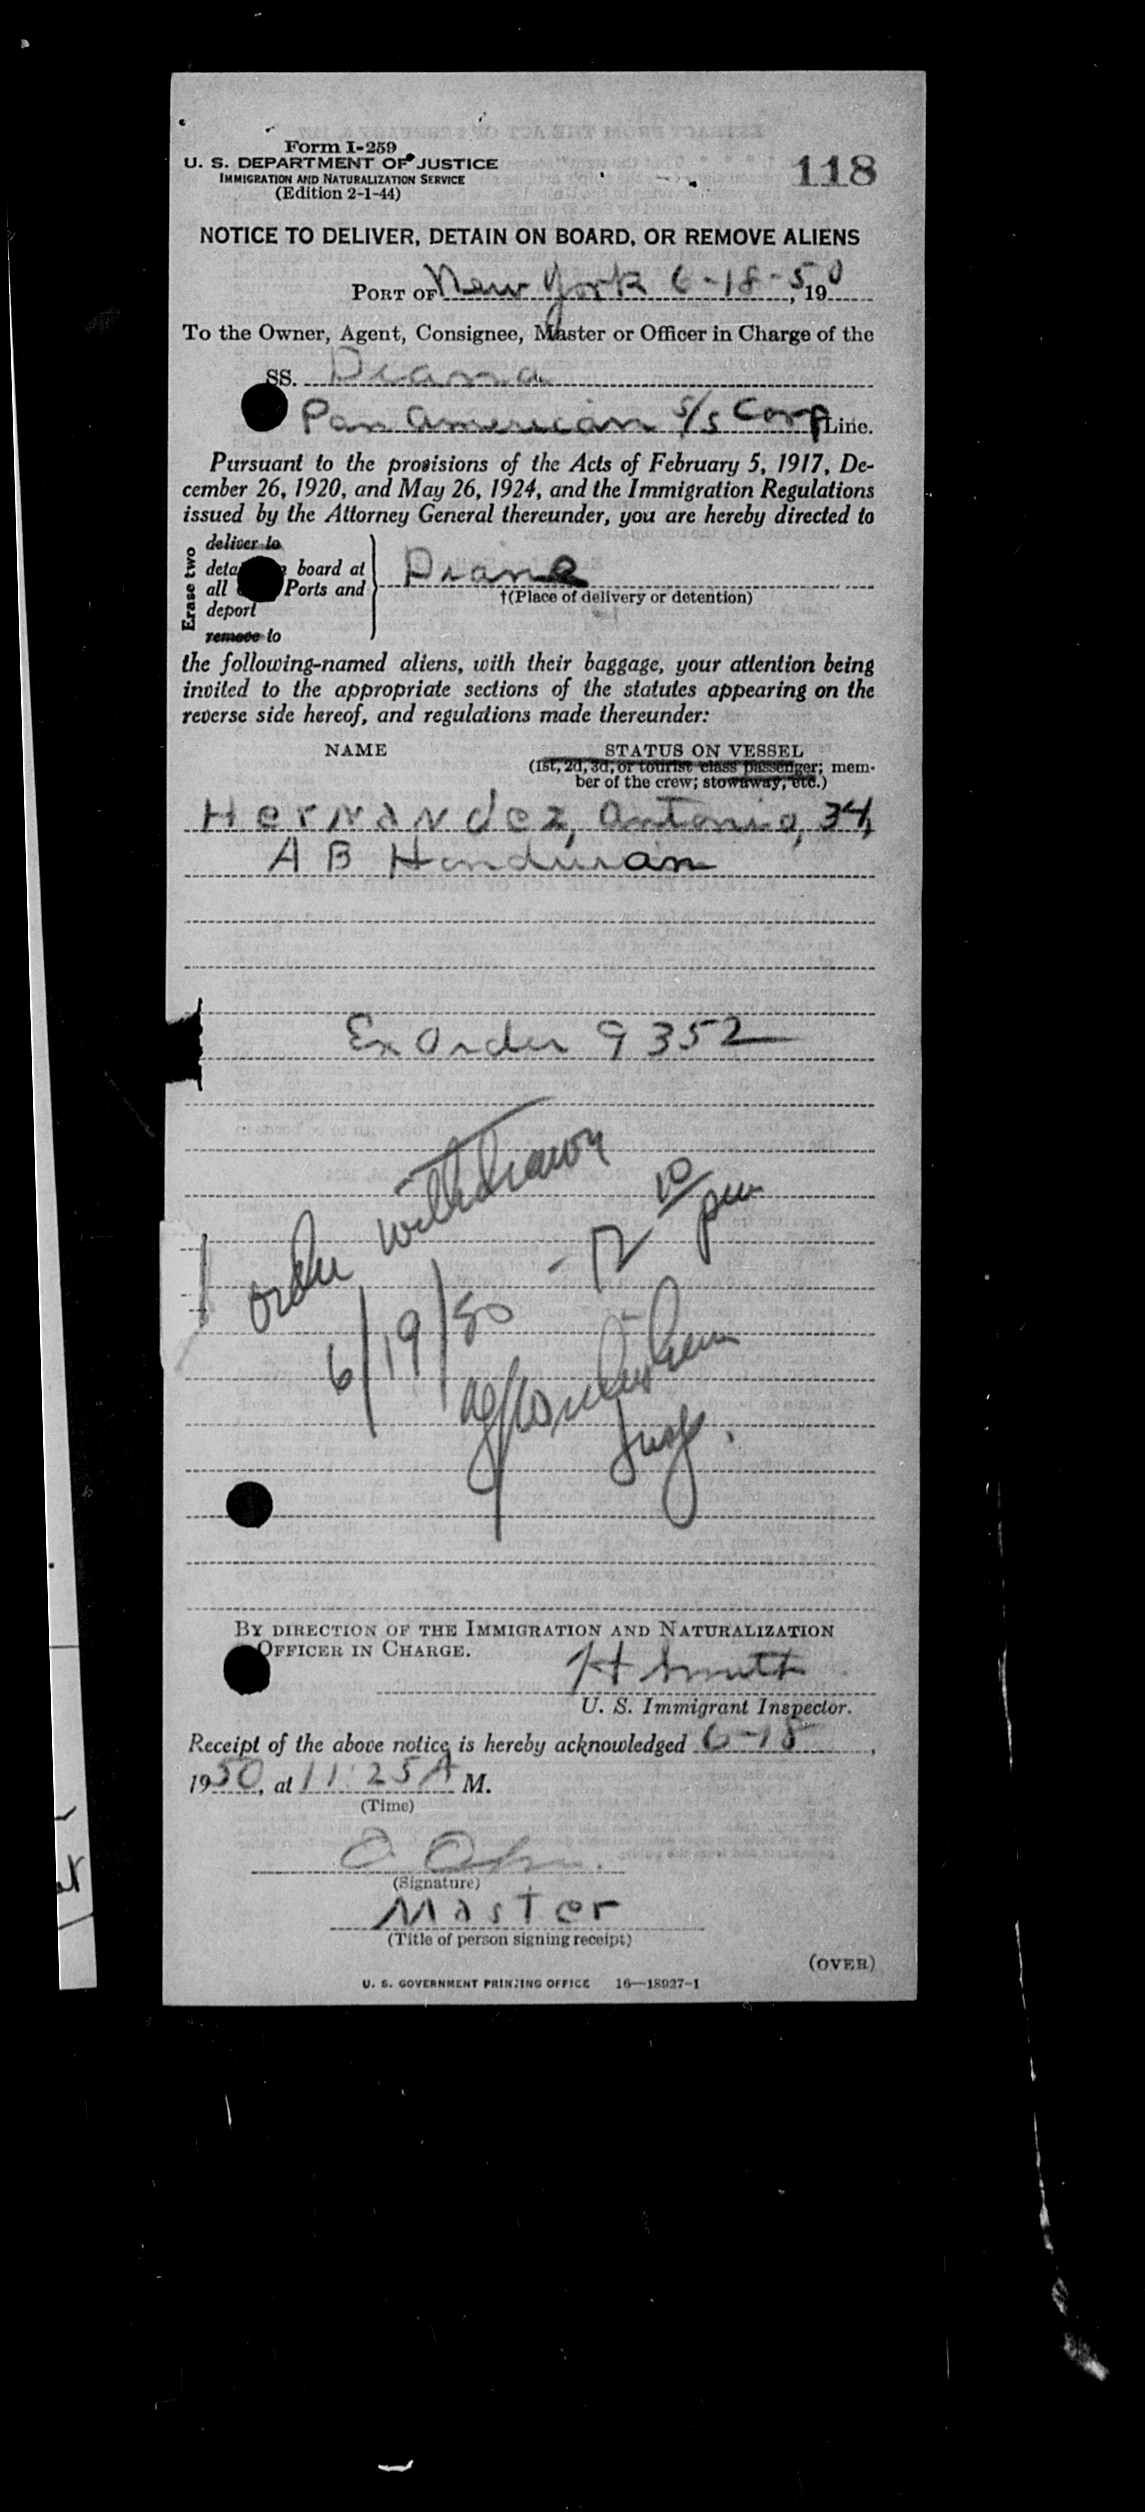 Form I-259
U. S. DEPARTMENT OF JUSTICE
IMMIGRATION AND NATURALIZATION SERVICE
(Edition 2-1-44)
118
NOTICE TO DELIVER, DETAIN ON BOARD, OR REMOVE ALIENS
PORT OF New York 6-18-50, 19
To the Owner, Agent, Consignee, Master or Officer in Charge of the
SS. Diana
Pan American S/S Corp Line.
Pursuant to the provisions of the Acts of February 5, 1917, De-
cember 26, 1920, and May 26, 1924, and the Immigration Regulations
issued by the Attorney General thereunder, you are hereby directed to
Erase two
deliver to
board at
all Ports and
deport
remove to
Diana
†(Place of delivery or detention)
the following-named aliens, with their baggage, your attention being
invited to the appropriate sections of the statutes appearing on the
reverse side hereof, and regulations made thereunder:
NAME STATUS ON VESSEL
(1st, 2d, 3d, or tourist class passenger; mem-
ber of the crew; stowaway, etc.)
Hernandez, Antonio, 34,
A B Honduran
Ex Order 9352
order withdrawn
6/19/50 - 12 10 pm
Insp.
BY DIRECTION OF THE IMMIGRATION AND NATURALIZATION
OFFICER IN CHARGE.
H Smith
U. S. Immigrant Inspector.
Receipt of the above notice is hereby acknowledged 6-18,
1950, at 11:25 A M.
(Time)
(Signature)
Master
(Title of person signing receipt)
(OVER)
U. S. GOVERNMENT PRINTING OFFICE 16—18927-1